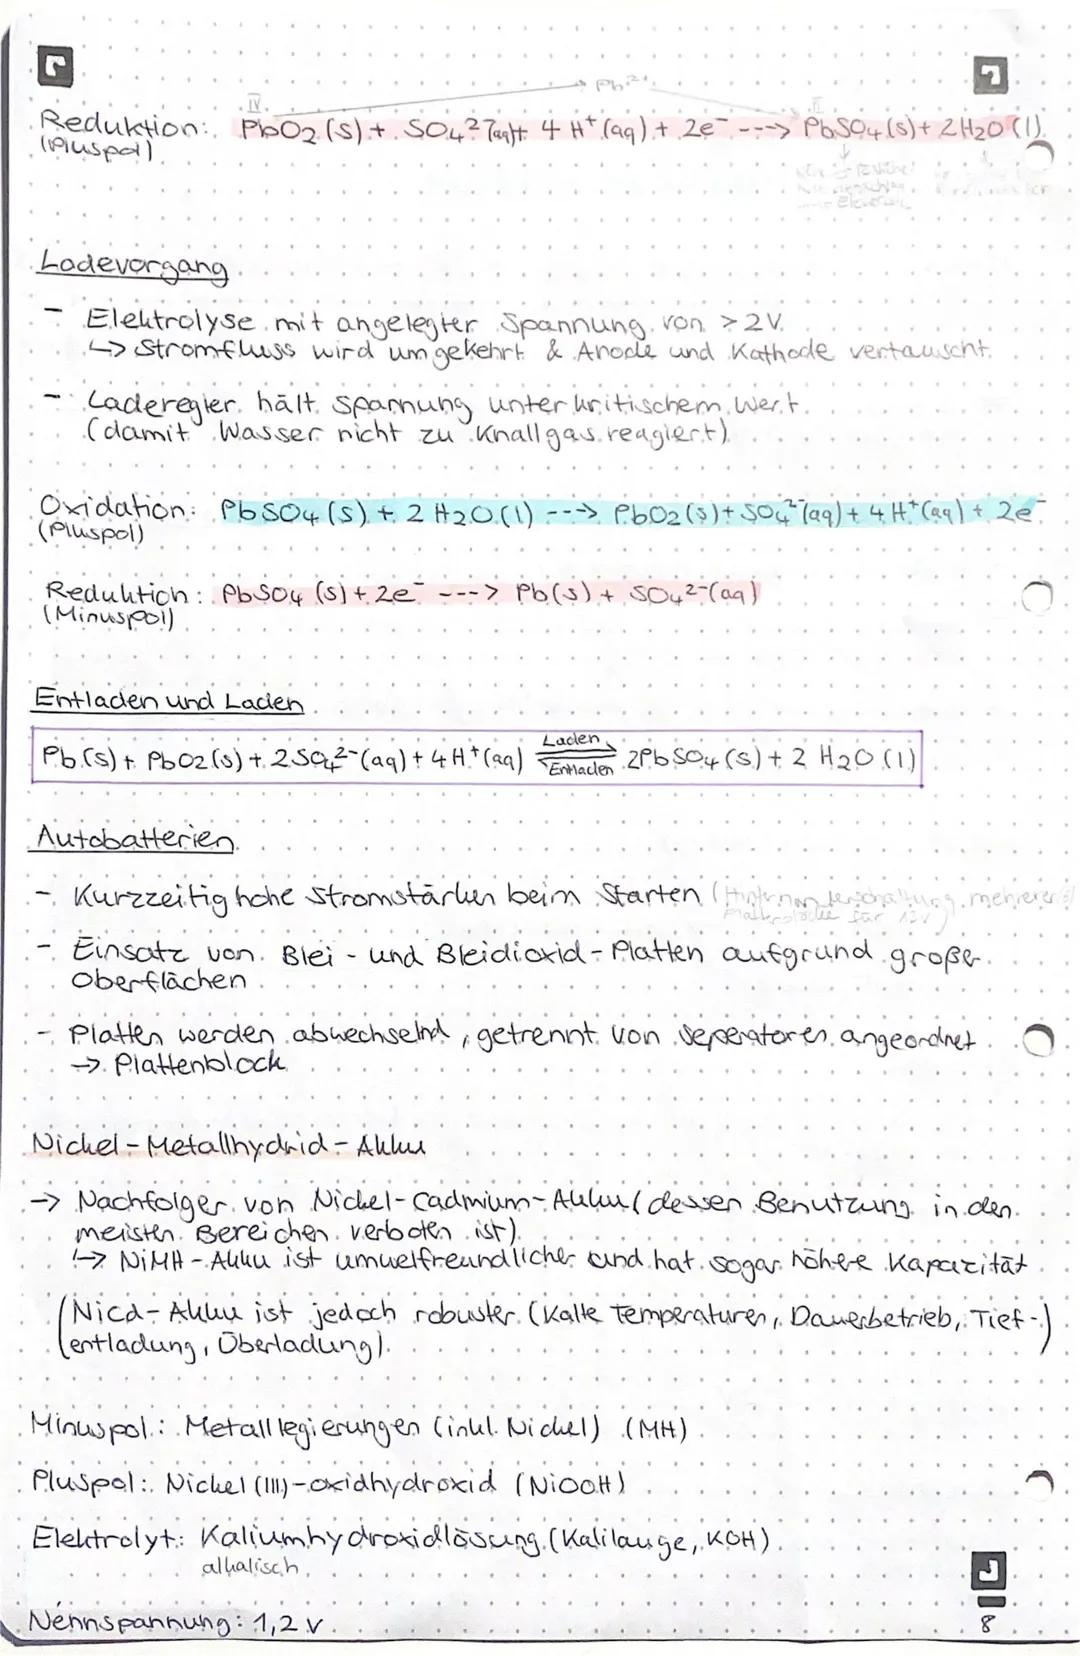 → Pb²⁺
IV II
Reduktion: PbO₂ (s) + SO₄²⁻(aq) + 4 H⁺ (aq) + 2e⁻ ---> PbSO₄ (s) + 2 H₂O (l)
(Pluspol)
Ladevorgang
- Elektrolyse mit angelegter Spannung von > 2 V.
↳ Stromfluss wird umgekehrt & Anode und Kathode vertauscht.
- Laderegler hält Spannung unter kritischem Wert
(damit Wasser nicht zu Knallgas reagiert)
Oxidation: PbSO₄ (s) + 2 H₂O (l) ---> PbO₂ (s) + SO₄²⁻ (aq) + 4 H⁺ (aq) + 2e⁻
(Pluspol)
Reduktion: PbSO₄ (s) + 2e⁻ ---> Pb (s) + SO₄²⁻ (aq)
(Minuspol)
Entladen und Laden
Pb (s) + PbO₂ (s) + 2 SO₄²⁻ (aq) + 4 H⁺ (aq) Laden ⇌ Entladen 2 PbSO₄ (s) + 2 H₂O (l)
Autobatterien
- Kurzzeitig hohe Stromstärken beim Starten (Hintereinanderschaltung mehrerer
Plattenblöcke für 12V)
- Einsatz von Blei- und Bleidioxid-Platten aufgrund großer
Oberflächen
- Platten werden abwechselnd, getrennt von Seperatoren angeordnet
→ Plattenblock
Nickel-Metallhydrid-Akku
→ Nachfolger von Nickel-Cadmium-Akku (dessen Benutzung in den
meisten Bereichen verboten ist)
↳ NiMH-Akku ist umwelfreundlicher und hat sogar höhere Kapazität
(Nicd-Akku ist jedoch robuster (kalte Temperaturen, Dauerbetrieb, Tief-
entladung, Überladung).)
Minuspol: Metalllegierungen (inkl. Nickel) (MH)
Pluspol: Nickel (III)-oxidhydroxid (NiOOH)
Elektrolyt: Kaliumhydroxidlösung (Kalilauge, KOH)
alkalisch
Nennspannung: 1,2 V
8